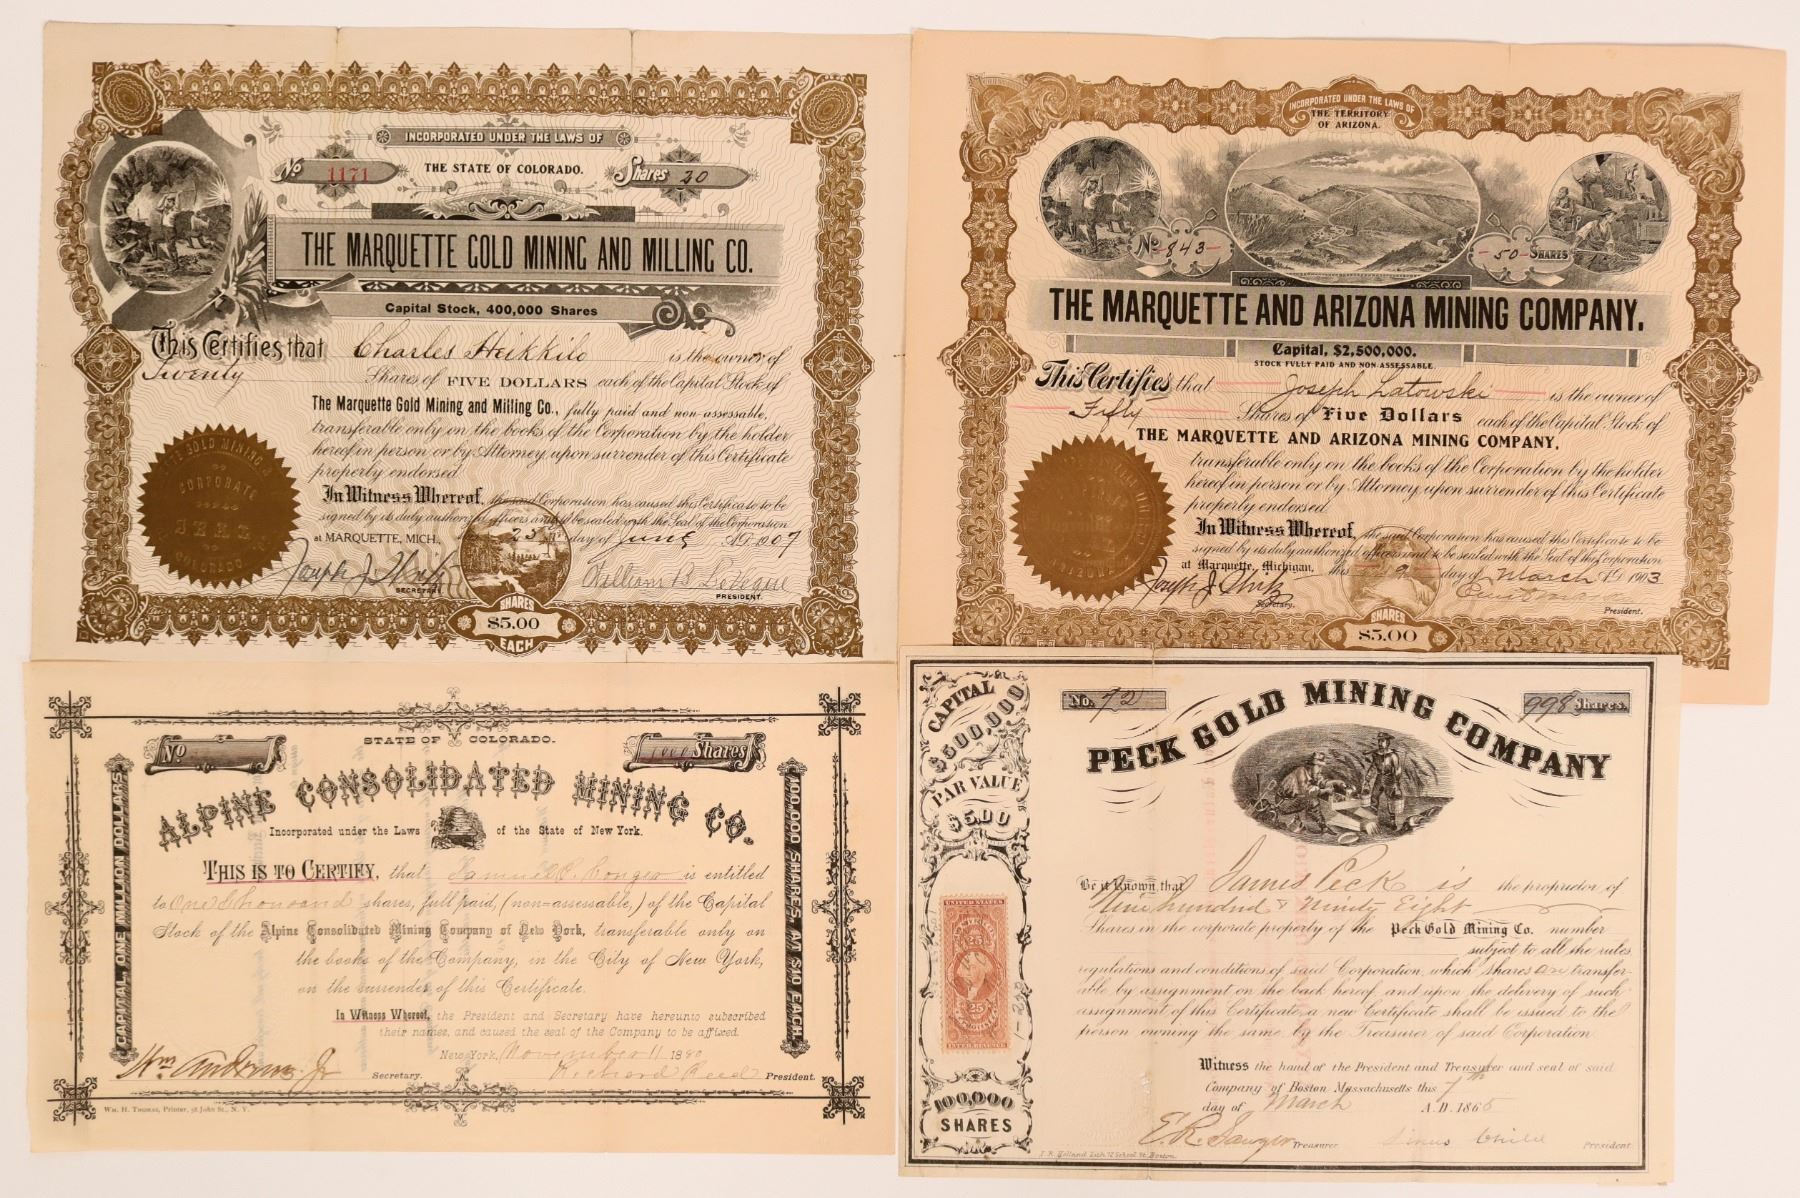 INCORPORATED UNDER THE LAWS OF
THE STATE OF COLORADO.
No 1171
Shares 20
THE MARQUETTE GOLD MINING AND MILLING CO.
Capital Stock, 400,000 Shares
This Certifies that Charles Heikkilo is the owner of
Twenty Shares of FIVE DOLLARS each of the Capital Stock of
The Marquette Gold Mining and Milling Co., fully paid and non-assessable,
transferable only on the books of the Corporation by the holder
hereof in person or by Attorney, upon surrender of this Certificate
properly endorsed.
In Witness Whereof, the said Corporation has caused this Certificate to be
signed by its duly authorized officers and to be sealed with the Seal of the Corporation
at MARQUETTE, MICH., this 25th day of June A.D. 1907
William B LeVeque
SECRETARY.
PRESIDENT.
GOLD MINING
CORPORATE
SEAL
COLORADO
SHARES
$5.00
EACH
INCORPORATED UNDER THE LAWS OF
THE TERRITORY
OF ARIZONA.
No -843-
-50- SHARES
THE MARQUETTE AND ARIZONA MINING COMPANY.
Capital, $2,500,000.
STOCK FULLY PAID AND NON-ASSESSABLE.
This Certifies that Joseph Latowski is the owner of
Fifty Shares of Five Dollars each of the Capital Stock of
THE MARQUETTE AND ARIZONA MINING COMPANY.
transferable only on the books of the Corporation by the holder
hereof in person or by Attorney, upon surrender of this Certificate
properly endorsed.
In Witness Whereof, the said Corporation has caused this Certificate to be
signed by its duly authorized officers and to be sealed with the Seal of the Corporation
at Marquette, Michigan, this 9 day of March A.D. 1903
Secretary.
President.
SHARES
$5.00
No
STATE OF COLORADO.
1000 Shares
ALPINE CONSOLIDATED MINING CO.
Incorporated under the Laws of the State of New York.
THIS IS TO CERTIFY, that Samuel C. Conger is entitled
to One Thousand shares, full paid, (non-assessable,) of the Capital
Stock of the Alpine Consolidated Mining Company of New York, transferable only on
the books of the Company, in the City of New York,
on the surrender of this Certificate.
In Witness Whereof, the President and Secretary have hereunto subscribed
their names, and caused the seal of the Company to be affixed.
New York, November 11 1880
Wm Andrews Jr Secretary.
Richard Reed President.
CAPITAL, ONE MILLION DOLLARS.
100,000 SHARES, AT $10 EACH.
Wm. H. Thomas, Printer, 98 John St., N. Y.
No. 72
998 Shares.
PECK GOLD MINING COMPANY
CAPITAL
$500,000
PAR VALUE
$5,00
Be it Known that James Peck is the proprietor of
Nine hundred & Ninety Eight
Shares in the corporate property of the Peck Gold Mining Co. number
subject to all the rules
regulations and conditions of said Corporation, which shares are transfer-
able by assignment on the back hereof, and upon the delivery of such
assignment of this Certificate, a new Certificate shall be issued to the
person owning the same, by the Treasurer of said Corporation.
Witness the hand of the President and Treasurer and seal of said
Company of Boston Massachusetts this 7th
day of March A.D. 1865
E.R. Sawyer Treasurer
Linus Child President
UNITED STATES
25
25
INTER. REVENUE
100,000
SHARES
J. R. Holland Lith. 12 School St. Boston.